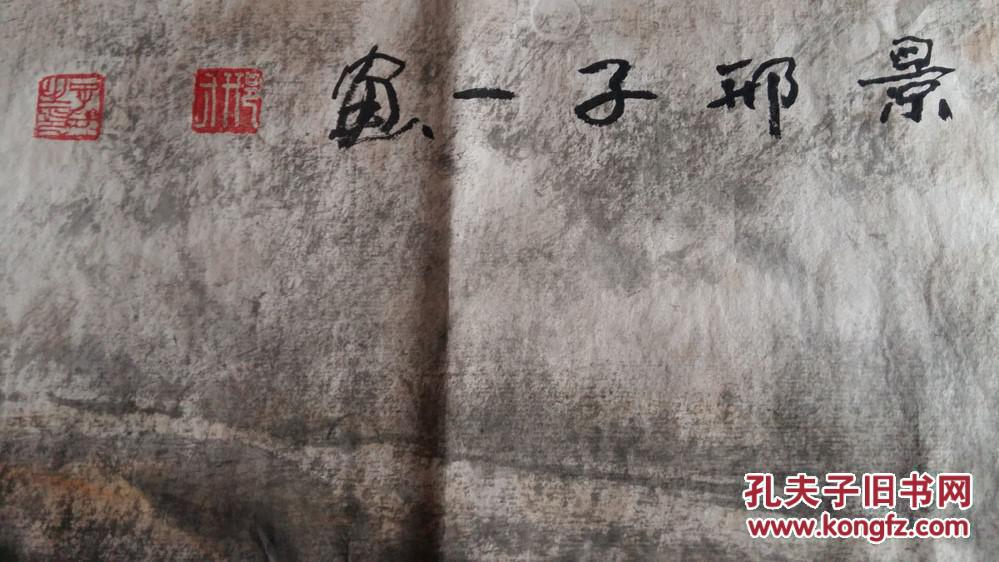 景邢子一
孔夫子旧书网
www.kongfz.com